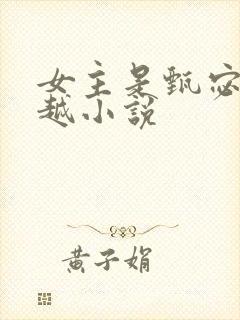 女主是甄宓
越小說
黃子娟